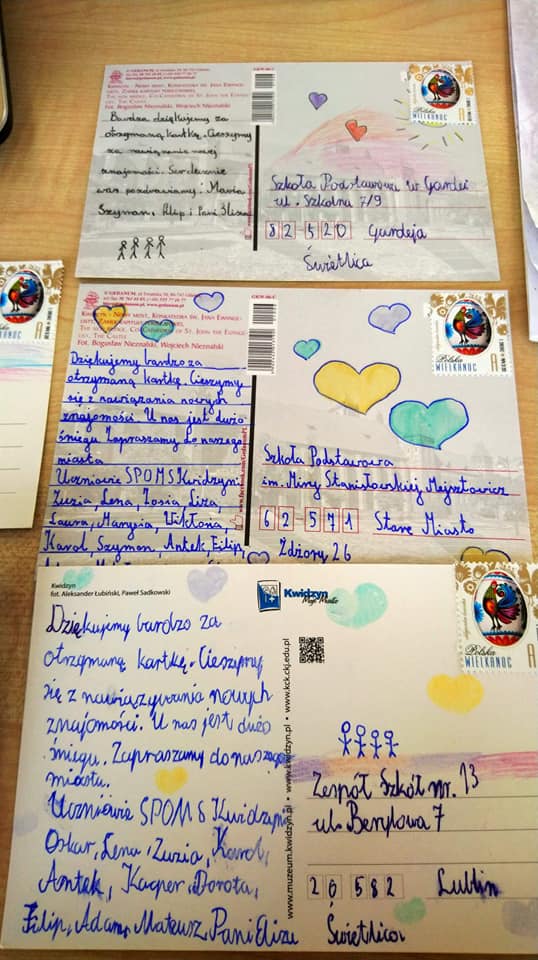 GEDANUM
KWIDZYN - NOWY MOST, KONKATEDRA ŚW. JANA EWANGE-
LISTY, ZAMEK KAPITUŁY POMEZAŃSKIEJ.
THE NEW BRIDGE, CO-CATHEDRAL OF ST. JOHN THE EVANGE-
LIST, THE CASTLE
Fot. Bogusław Nieznalski, Wojciech Nieznalski
Bardzo dziękujemy za
otrzymaną kartkę. Cieszymy
za nawiązanie nowej
znajomości. Serdecznie
was pozdrawiamy: Maria
Szymon, Filip i Pani Eliza
Polska
WIELKANOC A
Szkoła Podstawowa w Gardei
ul. Szkolna 7/9
82-520 Gardeja
Świetlica
GEDANUM
Fot. Bogusław Nieznalski, Wojciech Nieznalski
Dziękujemy bardzo za
otrzymaną kartkę. Cieszymy
się z nawiązania nowych
znajomości. U nas jest dużo
śniegu. Zapraszamy do naszego
miasta
Uczniowie SPOMS Kwidzyn:
Zuzia, Lena, Zosia, Liza,
Laura, Marysia, Wiktoria,
Karol, Szymon, Antek, Filip,
Polska
WIELKANOC A
Szkoła Podstawowa
im. Miry Stanisławskiej Meysztowicz
62-571 Stare Miasto
Żdżary 26
Kwidzyn
fot. Aleksander Łubiński, Paweł Sadkowski
Kwidzyn
Moje Miasto
www.muzeum.kwidzyn.pl • www.kwidzyn.pl • www.kck.ckj.edu.pl
Dziękujemy bardzo za
otrzymaną kartkę. Cieszymy
się z nawiązywania nowych
znajomości. U nas jest dużo
śniegu. Zapraszamy do naszego
miasta.
Uczniowie SPOMS Kwidzyn:
Oskar, Lena, Zuzia, Karol,
Antek, Kacper, Dorota,
Filip, Adam, Mateusz, Pani Eliza
Polska
WIELKANOC A
Zespół Szkół nr. 13
ul. Berylowa 7
20582 Lublin
Świetlica